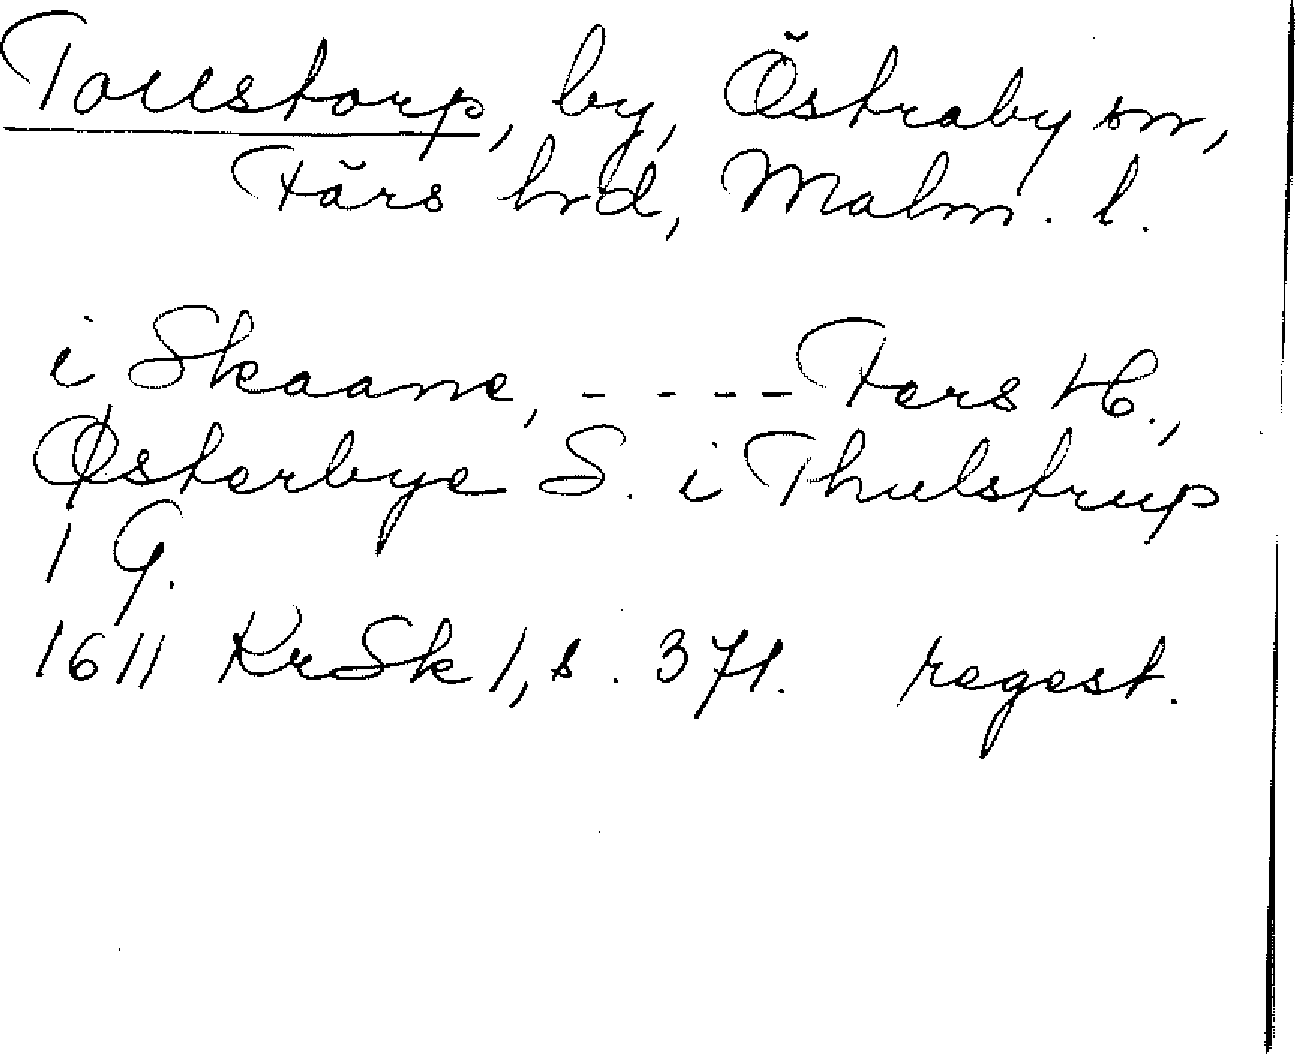 Tollstorp, by, Östraby sn,
Färs hrd, Malm. l.
i Skaane, - - - - Fers H.,
Østerbye S. i Thulstrup
1 G.
1611 KrSk 1, s. 371. regest.